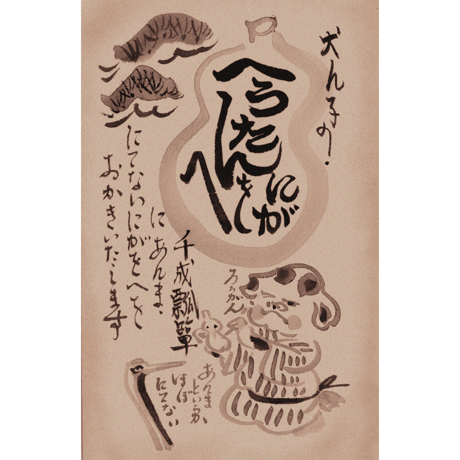 犬ん子の、
へうたん
にがを
へし
千成瓢箪
にあんま、
にてないにがをへを
おかきいたします
ろうかん
あんま
というか、
ほぼ
にてない